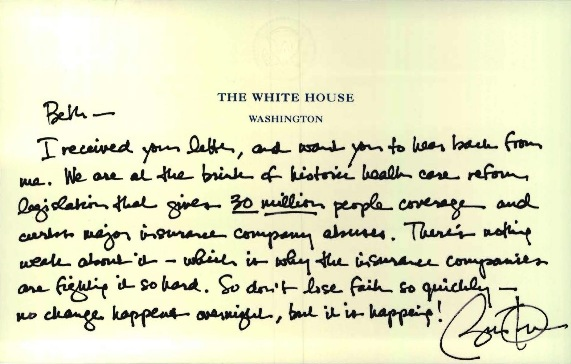 THE WHITE HOUSE
WASHINGTON
Beth —
I received your letter, and want you to hear back from
me. We are at the brink of historic health care reform
legislation that gives 30 million people coverage and
curbs major insurance company abuses. There's nothing
weak about it – which is why the insurance companies
are fighting it so hard. So don't lose faith so quickly —
no change happens overnight, but it is happening!